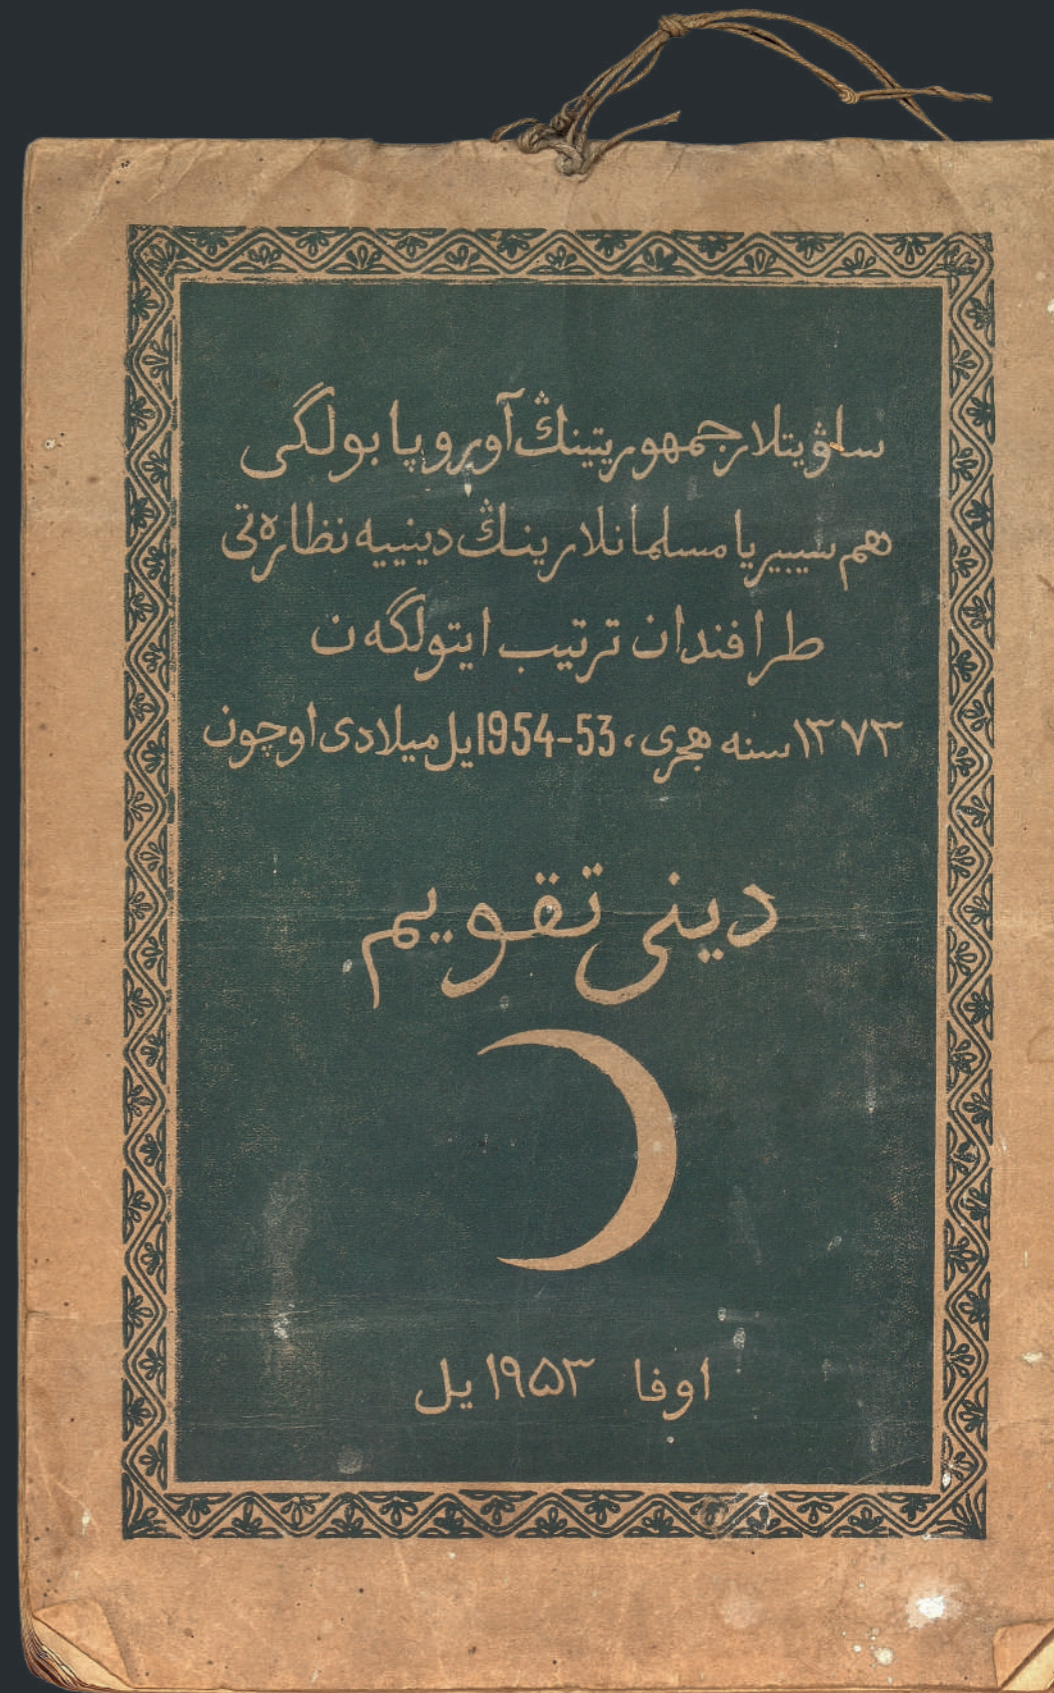 ساۋيتلار جمهوريتينڭ آوروپا بولگی
هم سيبيريا مسلمانلارينڭ دينييه نظارەتی
طرافندان ترتيب ايتولگەن
١٣٧٣ سنه هجری، 53-1954 يل ميلادی اوچون
دينی تقويم
اوفا ١٩۵٣ يل